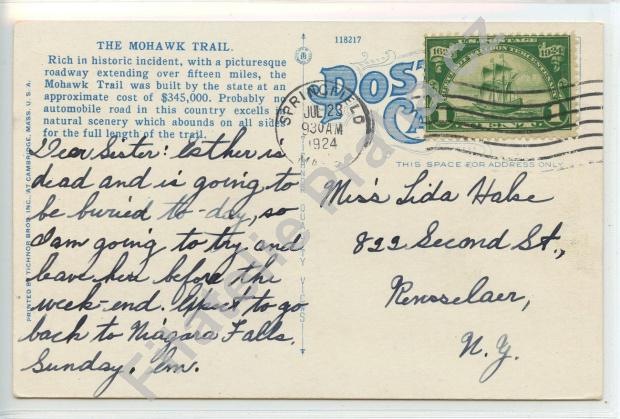 THE MOHAWK TRAIL.
Rich in historic incident, with a picturesque
roadway extending over fifteen miles, the
Mohawk Trail was built by the state at an
approximate cost of $345,000. Probably no
automobile road in this country excells in
natural scenery which abounds on all sides
for the full length of the trail.
Dear Sister: Esther is
dead and is going to
be buried to-day, so
I am going to try and
leave here before the
week-end. Expect to go
back to Niagara Falls,
Sunday. Em.
PRINTED BY TICHNOR BROS. INC., AT CAMBRIDGE, MASS., U.S.A.
118217
POST
CA
SPRINGFIELD
JUL 23
930AM
1924
MASS.
1624
1924
1
1
THIS SPACE FOR ADDRESS ONLY
QUALITY VIEWS
Miss Lida Halse
822 Second St.,
Rensselaer,
N.Y.
Filatelie Pra